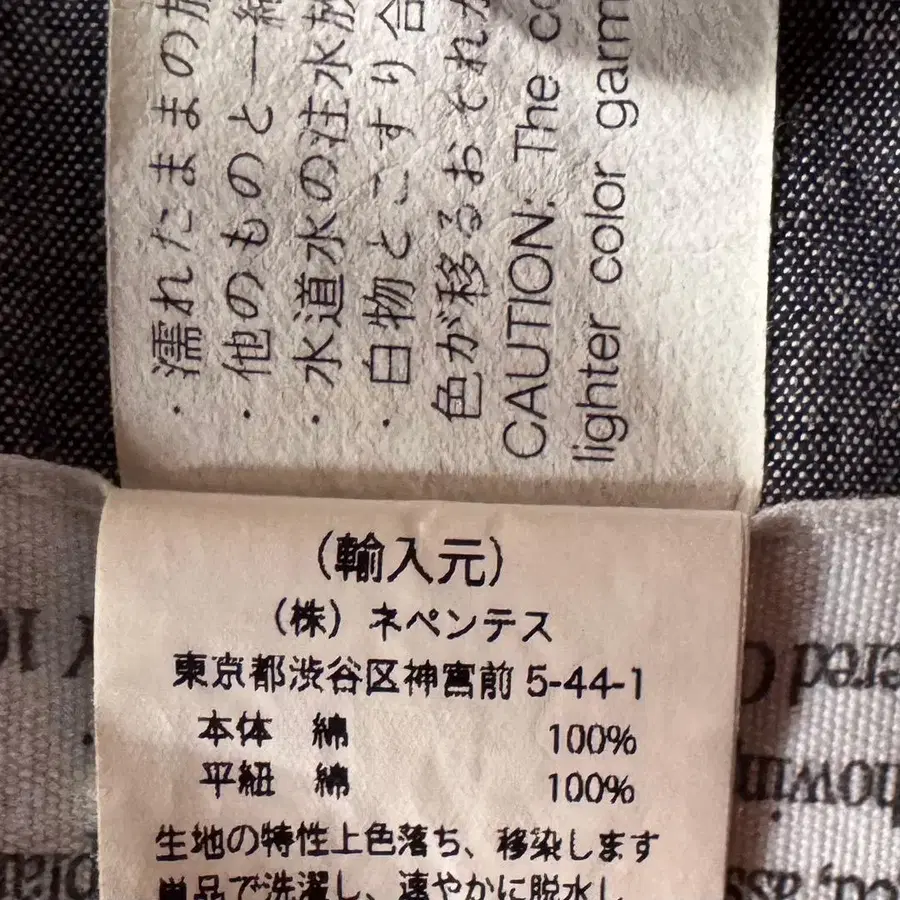 ・濡れたままの放
・他のものと一緒
・水道水の注水放
・白物とこすり合
色が移るおそれが
CAUTION: The co
lighter color garm
(輸入元)
(株) ネペンテス
東京都渋谷区神宮前 5-44-1
本体 綿 100%
平紐 綿 100%
生地の特性上色落ち、移染します
単品で洗濯し、速やかに脱水し